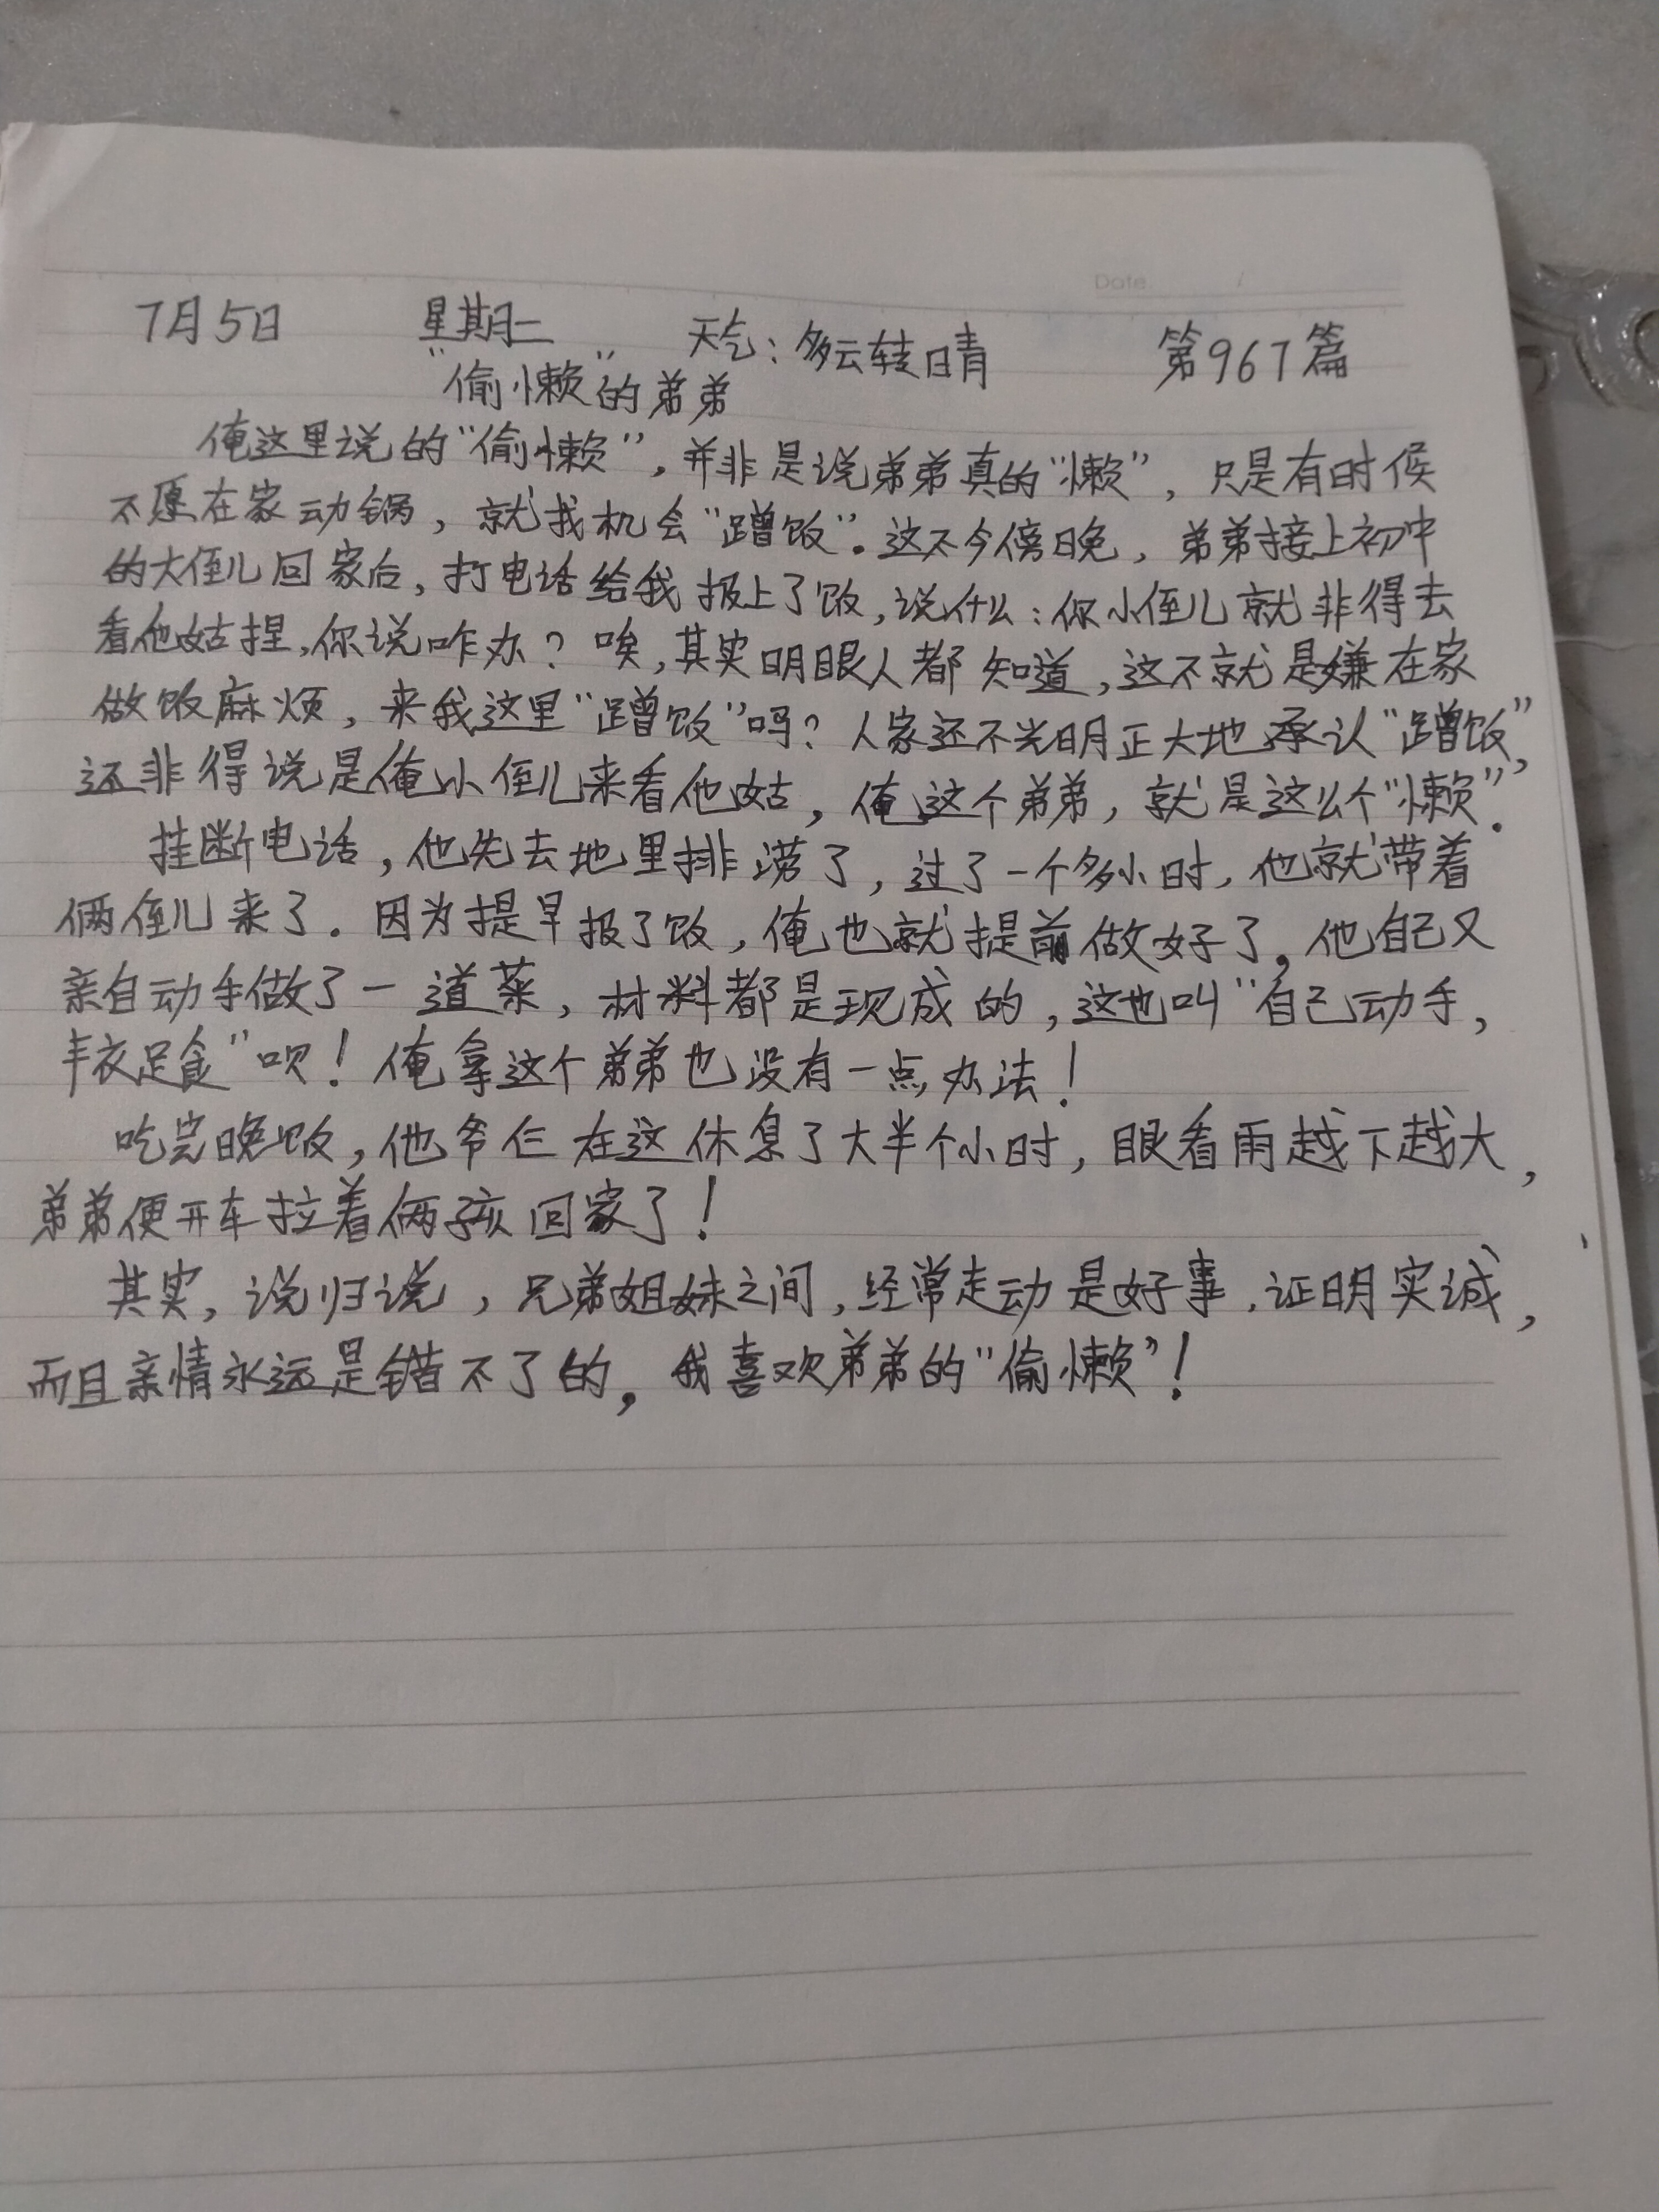 Date.
7月5日 星期二 天气：多云转晴 第967篇
“偷懒”的弟弟
俺这里说的“偷懒”，并非是说弟弟真的“懒”，只是有时候
不愿在家动锅，就找机会“蹭饭”。这不今傍晚，弟弟接上初中
的大侄儿回家后，打电话给我报上了饭，说什么：你小侄儿就非得去
看他姑捏，你说咋办？唉，其实明眼人都知道，这不就是嫌在家
做饭麻烦，来我这里“蹭饭”吗？人家还不光明正大地承认“蹭饭”，
还非得说是俺小侄儿来看他姑，俺这个弟弟，就是这么个“懒”.
挂断电话，他先去地里排涝了，过了一个多小时，他就带着
俩侄儿来了．因为提早报了饭，俺也就提前做好了。他自己又
亲自动手做了一道菜，材料都是现成的，这也叫“自己动手，
丰衣足食”呗！俺拿这个弟弟也没有一点办法！
吃完晚饭，他爷仨在这休息了大半个小时，眼看雨越下越大，
弟弟便开车拉着俩孩回家了！
其实，说归说，兄弟姐妹之间，经常走动是好事．证明实诚，
而且亲情永远是错不了的，我喜欢弟弟的“偷懒”！